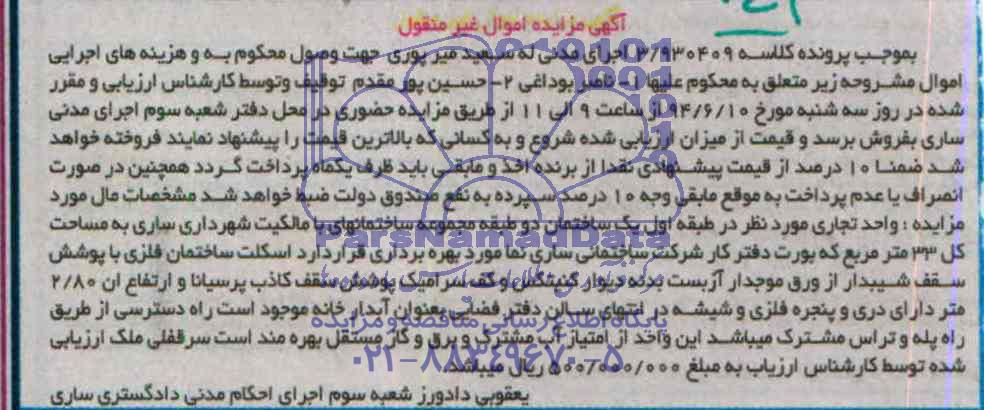 آگهی مزایده اموال غیر منقول
بموجب پرونده کلاسه ۳/۹۳۰۴۰۹ اجرای مدنی له سعید میر پوری جهت وصول محکوم به و هزینه های اجرایی
اموال مشروحه زیر متعلق به محکوم علیها ۱- ناصر بوداغی ۲- حسین پور مقدم توقیف وتوسط کارشناس ارزیابی و مقرر
شده در روز سه شنبه مورخ ۹۴/۶/۱۰ از ساعت ۹ الی ۱۱ از طریق مزایده حضوری در محل دفتر شعبه سوم اجرای مدنی
ساری بفروش برسد و قیمت از میزان ارزیابی شده شروع و به کسانی که بالاترین قیمت را پیشنهاد نمایند فروخته خواهد
شد ضمنا ۱۰ درصد از قیمت پیشنهادی نقدا از برنده اخذ و مابقی باید ظرف یکماه پرداخت گردد همچنین در صورت
انصراف یا عدم پرداخت به موقع مابقی وجه ۱۰ درصد سپرده به نفع صندوق دولت ضبط خواهد شد مشخصات مال مورد
مزایده : واحد تجاری مورد نظر در طبقه اول یک ساختمان دو طبقه مجموعه ساختمانهای با مالکیت شهرداری ساری به مساحت
کل ۳۳ متر مربع که بورت دفتر کار شرکت ساختمانی ساری نما مورد بهره برداری قرار دارد اسکلت ساختمان فلزی با پوشش
سقف شیبدار از ورق موجدار آزبست بدنه دیوار کنیتکس و کف سرامیک پوشش سقف کاذب پرسیانا و ارتفاع ان ۲/۸۰
متر دارای دری و پنجره فلزی و شیشه در انتهای سالن دفتر فضایی بعنوان آبدار خانه موجود است راه دسترسی از طریق
راه پله و تراس مشترک میباشد این واحد از امتیاز آب مشترک و برق و گاز مستقل بهره مند است سرقفلی ملک ارزیابی
شده توسط کارشناس ارزیاب به مبلغ ۵۰۰/۰۰۰/۰۰۰ ریال میباشد
یعقوبی دادورز شعبه سوم اجرای احکام مدنی دادگستری ساری
ParsNamadData
پایگاه اطلاع رسانی مناقصه و مزایده
۰۲۱-۸۸۳۴۹۶۷۰-۵